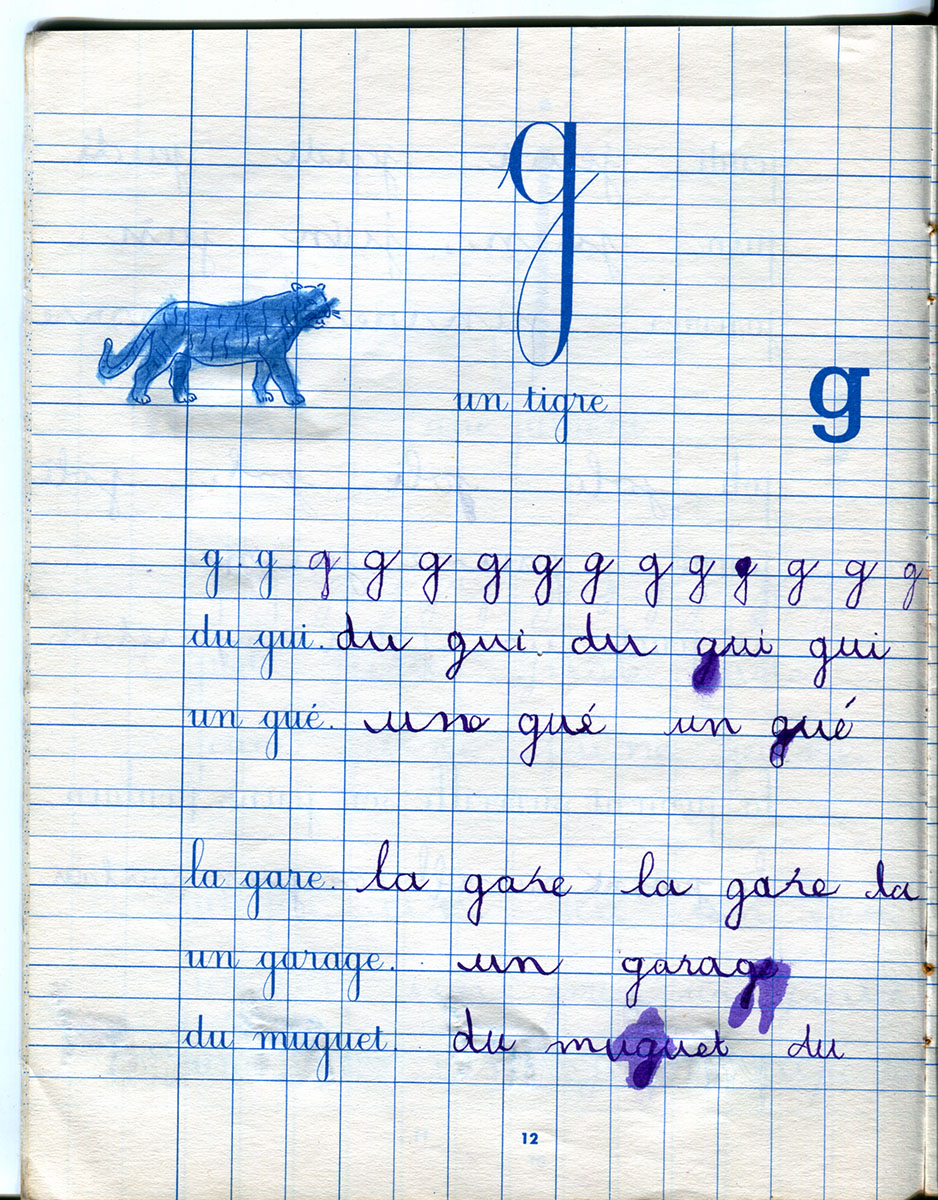 g
un tigre
g
g g g g g g g g g g g g g g
du gui. du gui. du gui gui
un gué. une gué un gué
la gare. la gare la gare la
un garage. un garage
du muguet. du muguet du
12